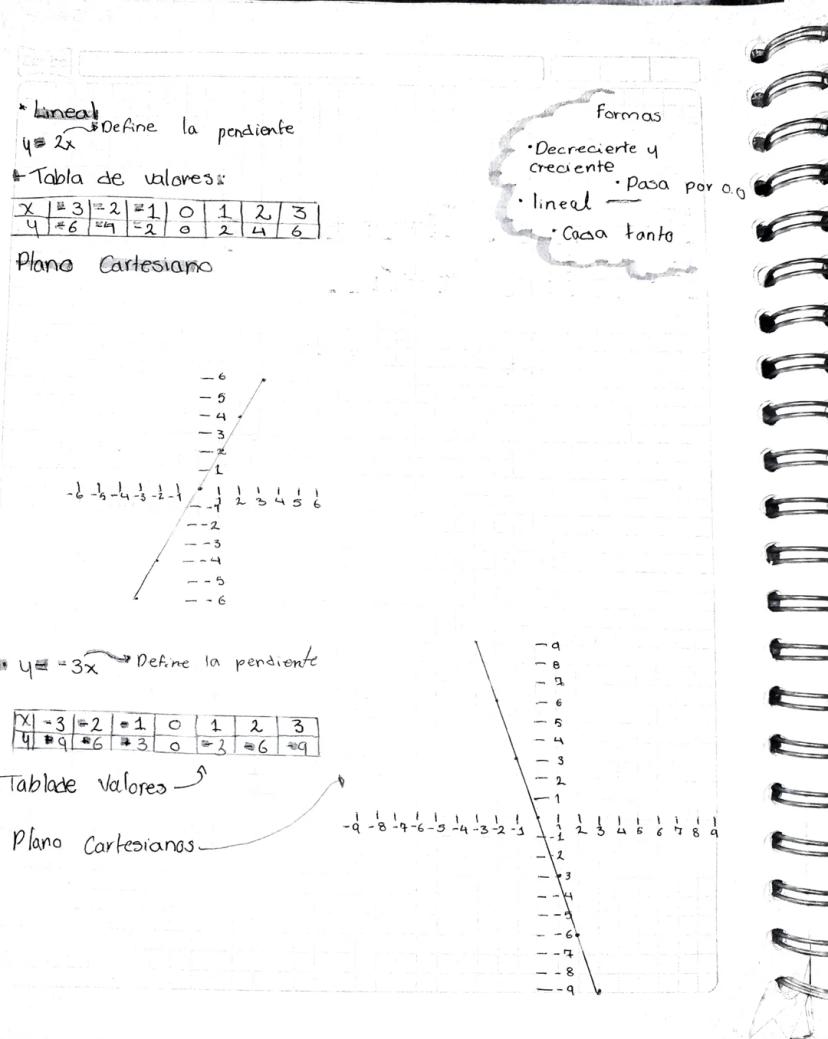 * Lineal
y = 2x → Define la pendiente
* Tabla de valores:
x | -3 | -2 | -1 | 0 | 1 | 2 | 3
y | -6 | -4 | -2 | 0 | 2 | 4 | 6
Plano Cartesiano
Formas
• Decreciente y
creciente
• Pasa por 0.0
• lineal —
• Cada tanto
6
5
4
3
2
1
-6 -5 -4 -3 -2 -1 1 2 3 4 5 6
-1
-2
-3
-4
-5
-6
• y = -3x → Define la pendiente
x | -3 | -2 | -1 | 0 | 1 | 2 | 3
y | 9 | 6 | 3 | 0 | -3 | -6 | -9
Tabla de Valores
Plano Cartesianos
9
8
7
6
5
4
3
2
1
-9 -8 -7 -6 -5 -4 -3 -2 -1 1 2 3 4 5 6 7 8 9
-1
-2
-3
-4
-5
-6
-7
-8
-9